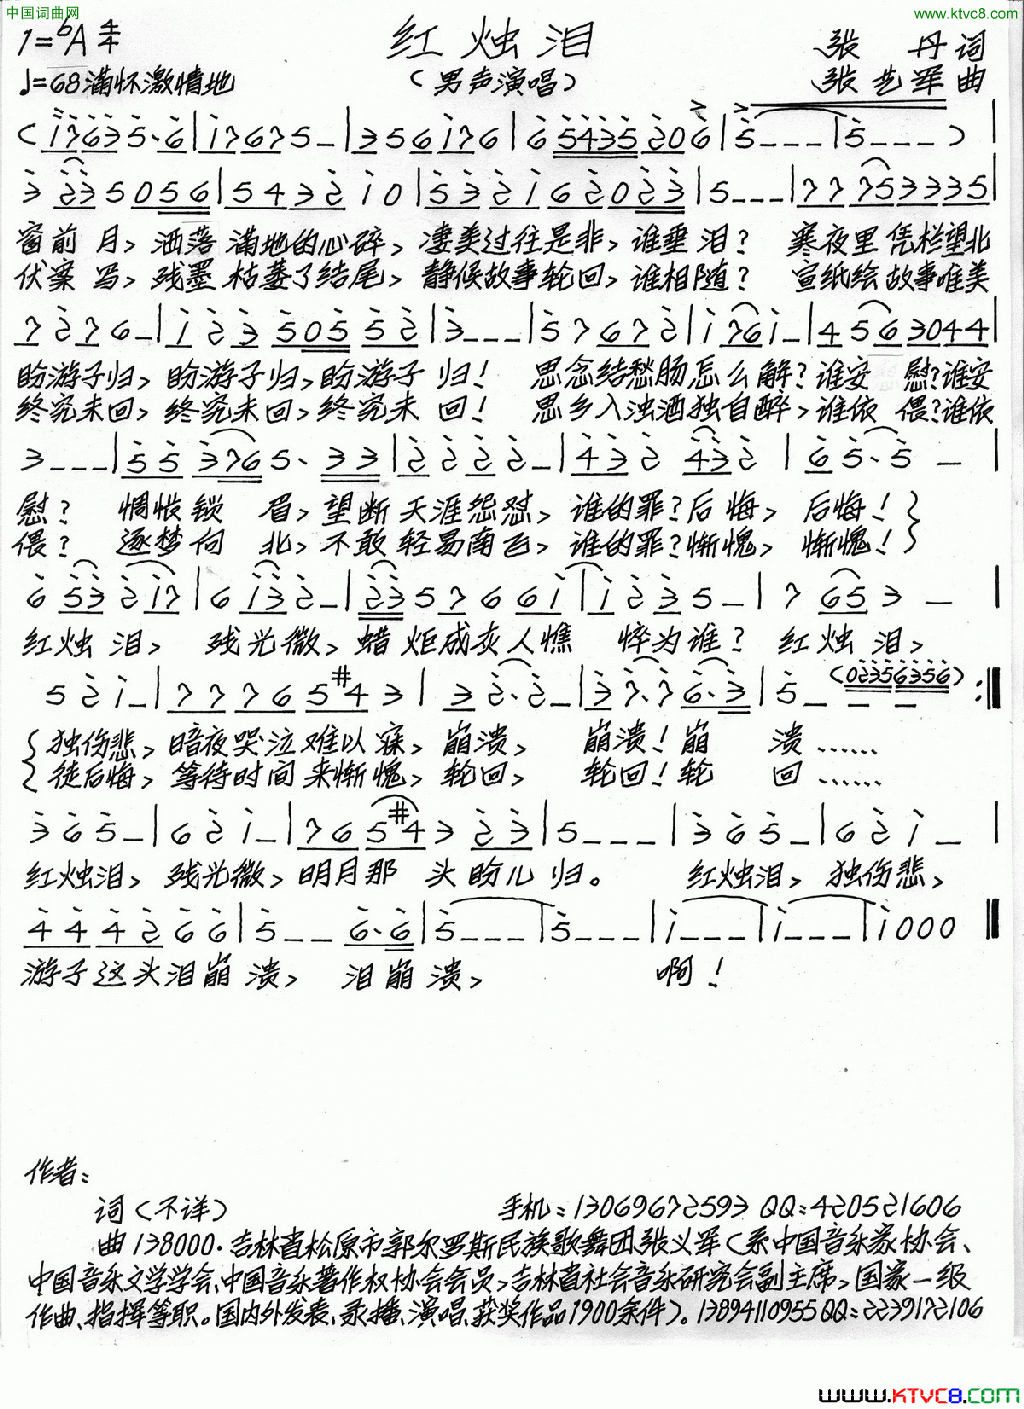 中国词曲网
www.ktvc8.com
1=♭A 4/4
红烛泪
张丹 词
♩=68满怀激情地
(男声演唱)
张艺军 曲
(i763 5·6|1767 5–|356 176|65435 206|5–––|5–––)|
3 23 5056|5432 10|5321 6202 3|5–––|7775 3335|
窗前 月, 洒落 满地的心碎, 凄美过往是非, 谁垂泪? 寒夜里凭栏望北
伏案 写, 残墨 枯萎了结尾, 静候故事轮回, 谁相随? 宣纸绘故事唯美
7276–|123 505 52|3–––|57672|1761–|456 3044|
盼游子归, 盼游子归, 盼游子 归! 思念结愁肠怎么解? 谁安 慰? 谁安
终究未回, 终究未回, 终究未 回! 思乡入浊酒独自醉, 谁依 偎? 谁依
3–––|55 3765·33|2222–|432 432|65·5–|
慰? 惆怅锁 眉, 望断天涯怨怼, 谁的罪? 后悔, 后悔!
偎? 逐梦向 北, 不敢轻易南飞, 谁的罪? 惭愧, 惭愧!
6 53 2 17|6 132–|23 5 7 6 61|1 2 35–|7 65 3–|
红烛泪, 残光微, 蜡炬成灰人憔 悴为谁? 红烛泪,
521–|7776 5#43|32·2–|37·76·3|5––– (02356356) :‖
独伤悲, 暗夜哭泣难以寐, 崩溃, 崩溃! 崩 溃……
徒后悔, 等待时间来惭愧, 轮回, 轮回! 轮 回……
365–|621–|765#43 23|5–––|365–|621–|
红烛泪, 残光微, 明月那 头盼儿归。 红烛泪, 独伤悲,
444266|5––6·6|5–––|5–––|i–––|i–––|i000‖
游子这头泪崩溃, 泪崩溃, 啊!
作者:
词(不详) 手机:13069672593 QQ:420521606
曲138000·吉林省松原市郭尔罗斯民族歌舞团张义军(系中国音乐家协会、
中国音乐文学学会、中国音乐著作权协会会员,吉林省社会音乐研究会副主席,国家一级
作曲、指挥等职。国内外发表、录播、演唱、获奖作品1900余件)。13894110955 QQ:2239172106
www.KTVC8.com